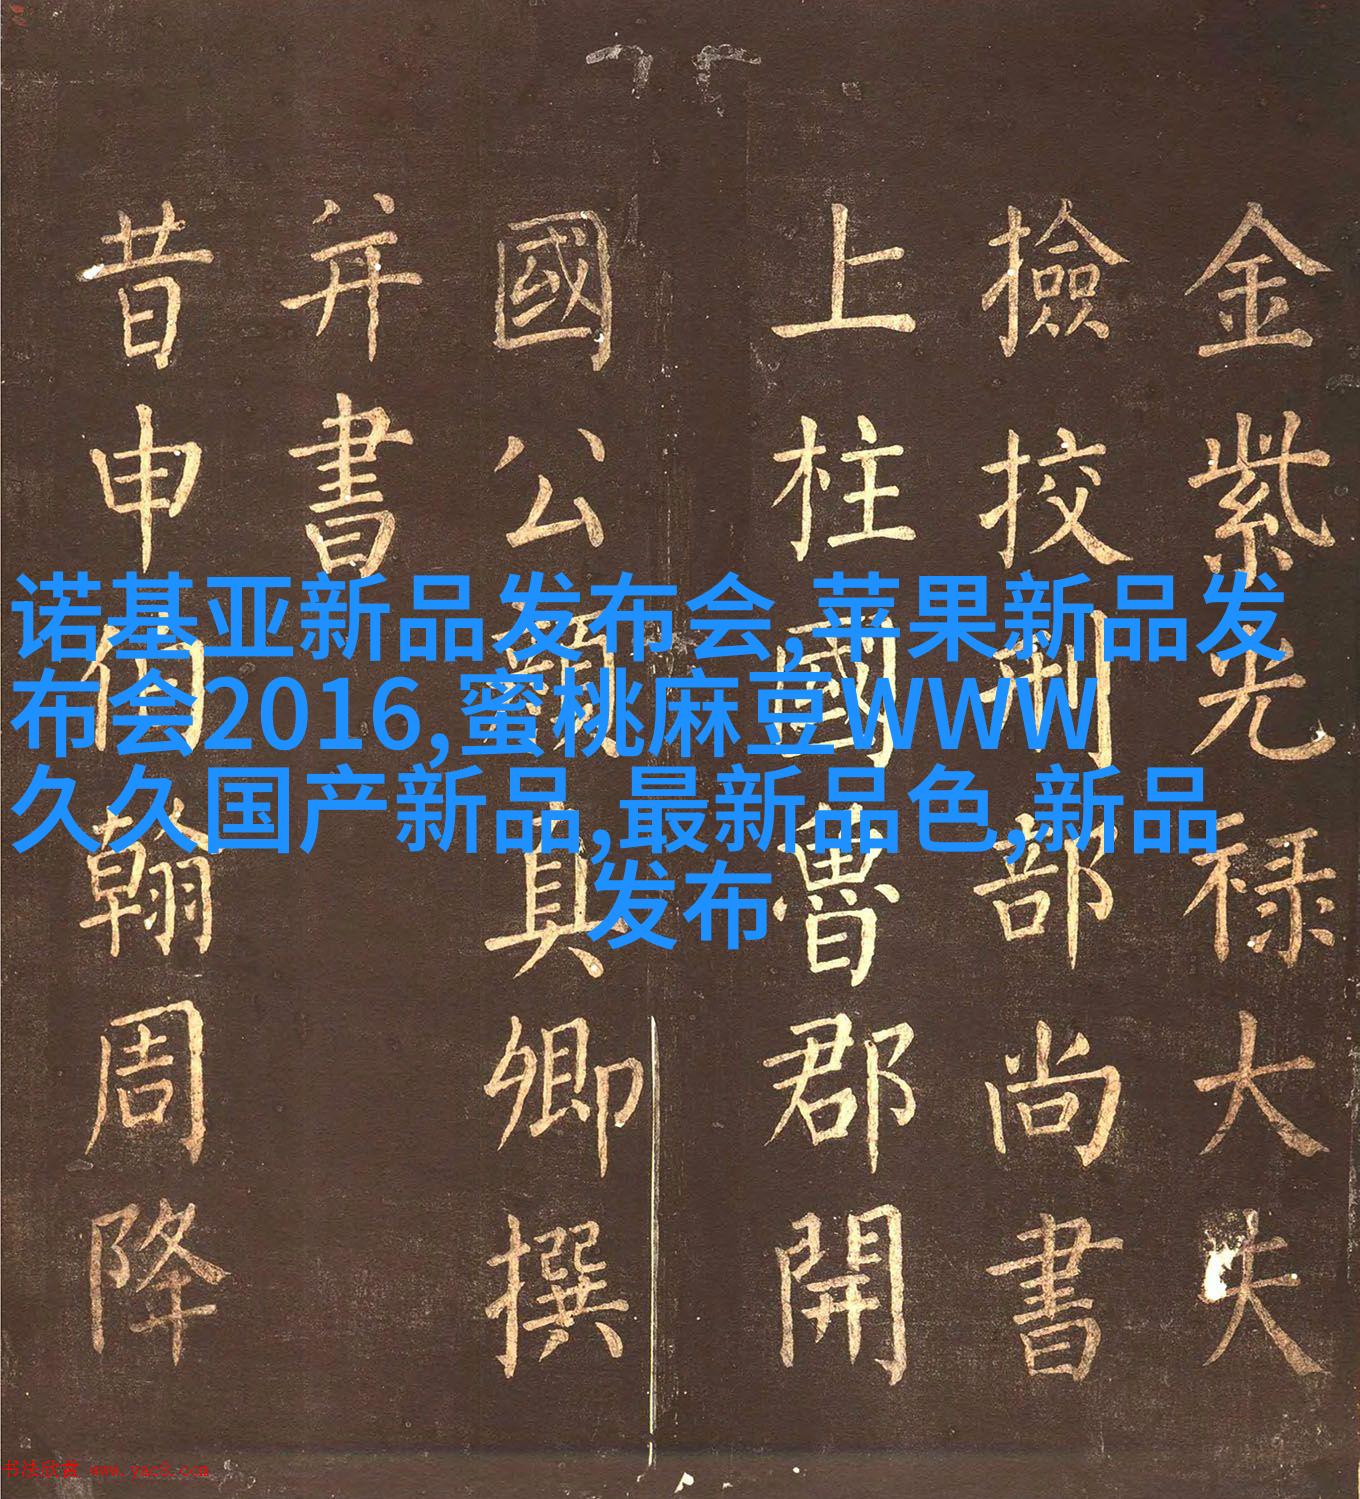 金紫光禄大夫
撿挍刑部尚書
上柱國魯郡開
國公顔真卿撰
并書
昔申伯翰周降
诺基亚新品发布会,苹果新品发
布会2016,蜜桃麻豆WWW
久久国产新品,最新品色,新品
发布
书法欣赏 www.yac8.com